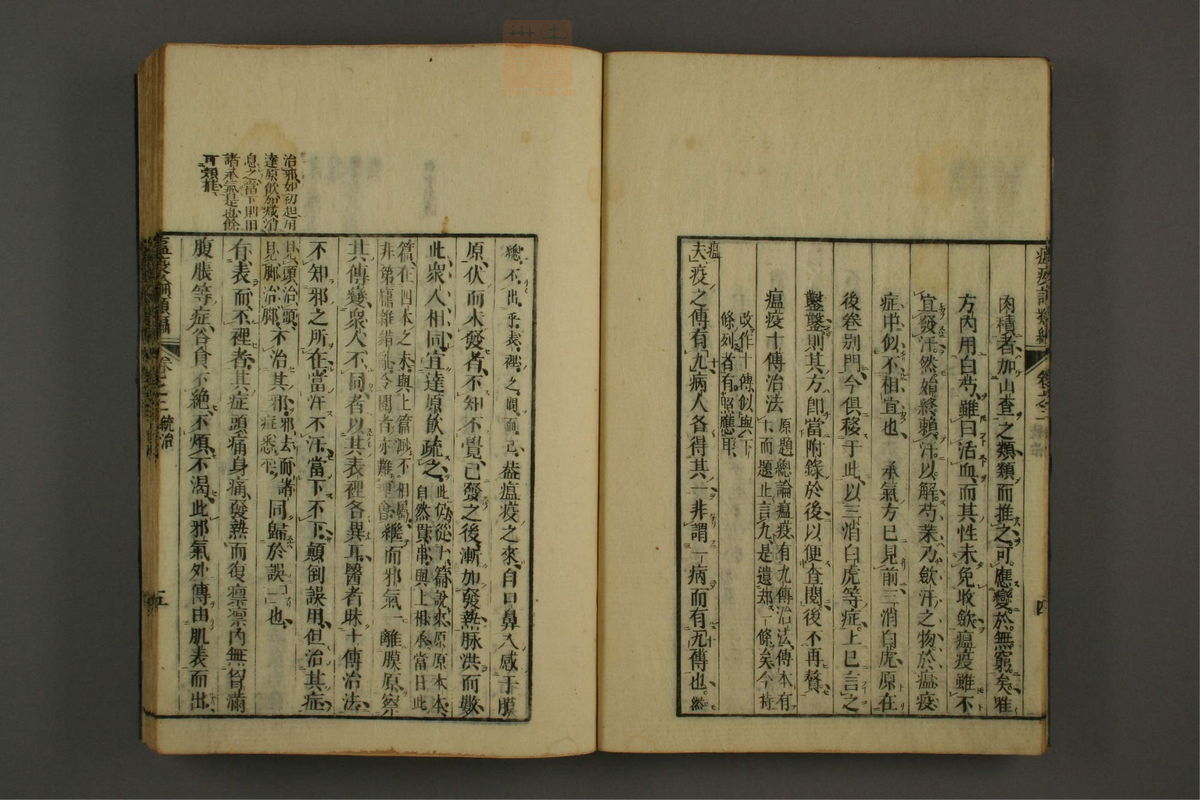 瘟疫論類編 卷之二 統治 四
肉積者加山查之類類而推之可應變於無窮矣雅
方內用白芍雖曰活血而其性未免收斂瘟疫雖不
宜發汗然始終賴汗以解芍藥乃斂汗之物於瘟疫
症中似不相宜也 承氣方已見前三消白虎原在
後卷別門今俱移于此以三消白虎等症上已言之
鑿鑿則其方卽當附錄於後以便查閱後不再贅
瘟疫十傳治法 原題總論瘟疫有九傳治法傳本有十而題止言九是遺却一條矣今特
改作十傳似與下條列者有照應耳
夫瘟疫之傳有十九病人各得其一非謂一病而有九傳也然
總不出乎表裡之間而已蓋瘟疫之來自口鼻入感于膜
原伏而未發者不知不覺已發之後漸加發熱脉洪而數
此衆人相同宜達原飲疏之 此似從上篇說來原原本本自然貫串與上相承當日此
篇在四本之末與上篇濺不相屬非第篇雜錯亂令閱者亦難
繼而邪氣一離膜原察
其傳變衆人不同者以其表裡各異耳醫者昧十傳治法
不知邪之所在當汗不汗當下不下顛倒誤用但治其症
見頭治頭見脚治脚不治其邪邪去而諸症悉平同歸於誤一也
有表而不裡者其症頭痛身痛發熱而復凛凛內無胷滿
腹脹等症谷食不絕不煩不渴此邪氣外傳由肌表而出
治邪如初起用
達原飲加減消
息之當下則用
諸承氣是也餘
可類推
瘟疫論類編 卷之二 統治 五